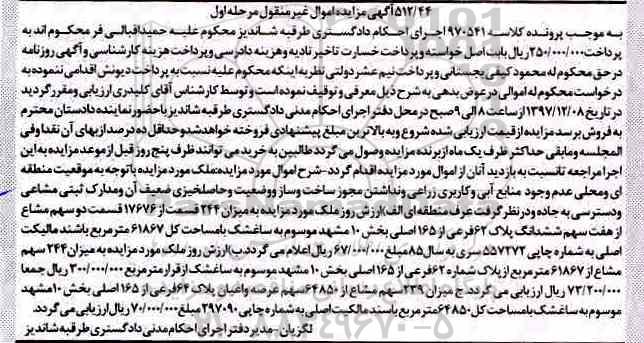 ۵۱۲/۴۴آگهی مزایده اموال غیر منقول مرحله اول
به موجب پرونده کلاسه ۹۷۰۵۴۱ اجرای احکام دادگستری طرقبه شاندیز محکوم علیه حمید اقبالی فر محکوم اند به
پرداخت ۲۵۰/۰۰۰/۰۰۰ ریال بابت اصل خواسته و پرداخت خسارت تاخیر تادیه و هزینه دادرسی و پرداخت هزینه کارشناسی و آگهی روزنامه
در حق محکوم له محمود کیفی بجستانی و پرداخت نیم عشر دولتی نظر به اینکه محکوم علیه نسبت به پرداخت دیونش اقدامی ننموده به
درخواست محکوم له اموالی در عوض بدهی به شرح ذیل معرفی و توقیف نموده است و توسط کارشناس آقای کلیدری ارزیابی و مقرر گردید
در تاریخ ۱۳۹۷/۱۲/۰۸ از ساعت ۸ الی ۹ صبح در محل دفتر اجرای احکام مدنی دادگستری طرقبه شاندیز با حضور نماینده دادستان محترم
به فروش برسد مزایده از قیمت ارزیابی شده شروع و به بالاترین مبلغ پیشنهادی فروخته خواهد شد و حداقل ده درصد از بهای آن نقدا و فی
المجلسه و مابقی حداکثر ظرف یک ماه از برنده مزایده وصول می گردد طالبین به خرید می توانند ظرف پنج روز قبل از موعد مزایده به این
اجرا مراجعه تا نسبت به بازدید آنان از اموال مورد مزایده اقدام گردد-شرح اموال مورد مزایده:ملک مورد مزایده با توجه به موقعیت منطقه
ای و محلی عدم وجود منابع آبی و کاربری زراعی و نداشتن مجوز ساخت و ساز و وضعیت و حاصلخیزی ضعیف آن و مدارک ثبتی مشاعی
و دسترسی به جاده و در نظر گرفت عرف منطقه ای الف)ارزش روز ملک مورد مزایده به میزان ۲۴۴ قسمت از ۱۷۶۷۶ قسمت دو سهم مشاع
از هفت سهم ششدانگ پلاک ۶۲ فرعی از ۱۶۵ اصلی بخش ۱۰ مشهد موسوم به ساغشک با مساحت کل ۶۱۸۶۷ مترمربع باشند مالکیت
اصلی به شماره چاپی ۵۵۷۲۷۲ سری به سال ۸۵ مبلغ ۶۷/۰۰۰/۰۰۰ ریال اعلام می گردد.ب)ارزش روز ملک مورد مزایده به میزان ۲۴۴ سهم
مشاع از ۶۱۸۶۷ مترمربع از پلاک شماره ۶۲ فرعی از ۱۶۵ اصلی بخش ۱۰ مشهد موسوم به ساغشک از قرار مترمربع ۳۰۰/۰۰۰ ریال جمعا
۷۳/۲۰۰/۰۰۰ ریال ارزیابی می گردد.ج میزان ۲۳۹ سهم مشاع از ۶۴۸۵۰ سهم عرصه و اعیان پلاک ۶۴ فرعی از ۱۶۵ اصلی بخش ۱۰ مشهد
موسوم به ساغشک با مساحت کل ۶۴۸۵۰ مترمربع باسند مالکیت اصلی به شماره چاپی ۲۹۷۰۹۰ مبلغ ۷۰/۰۰۰/۰۰۰ ریال ارزیابی می گردد.
لگزیان -مدیر دفتر اجرای احکام مدنی دادگستری طرقبه شاندیز
۰۲۱-۸۸۳۴۹۶۷۰-۵